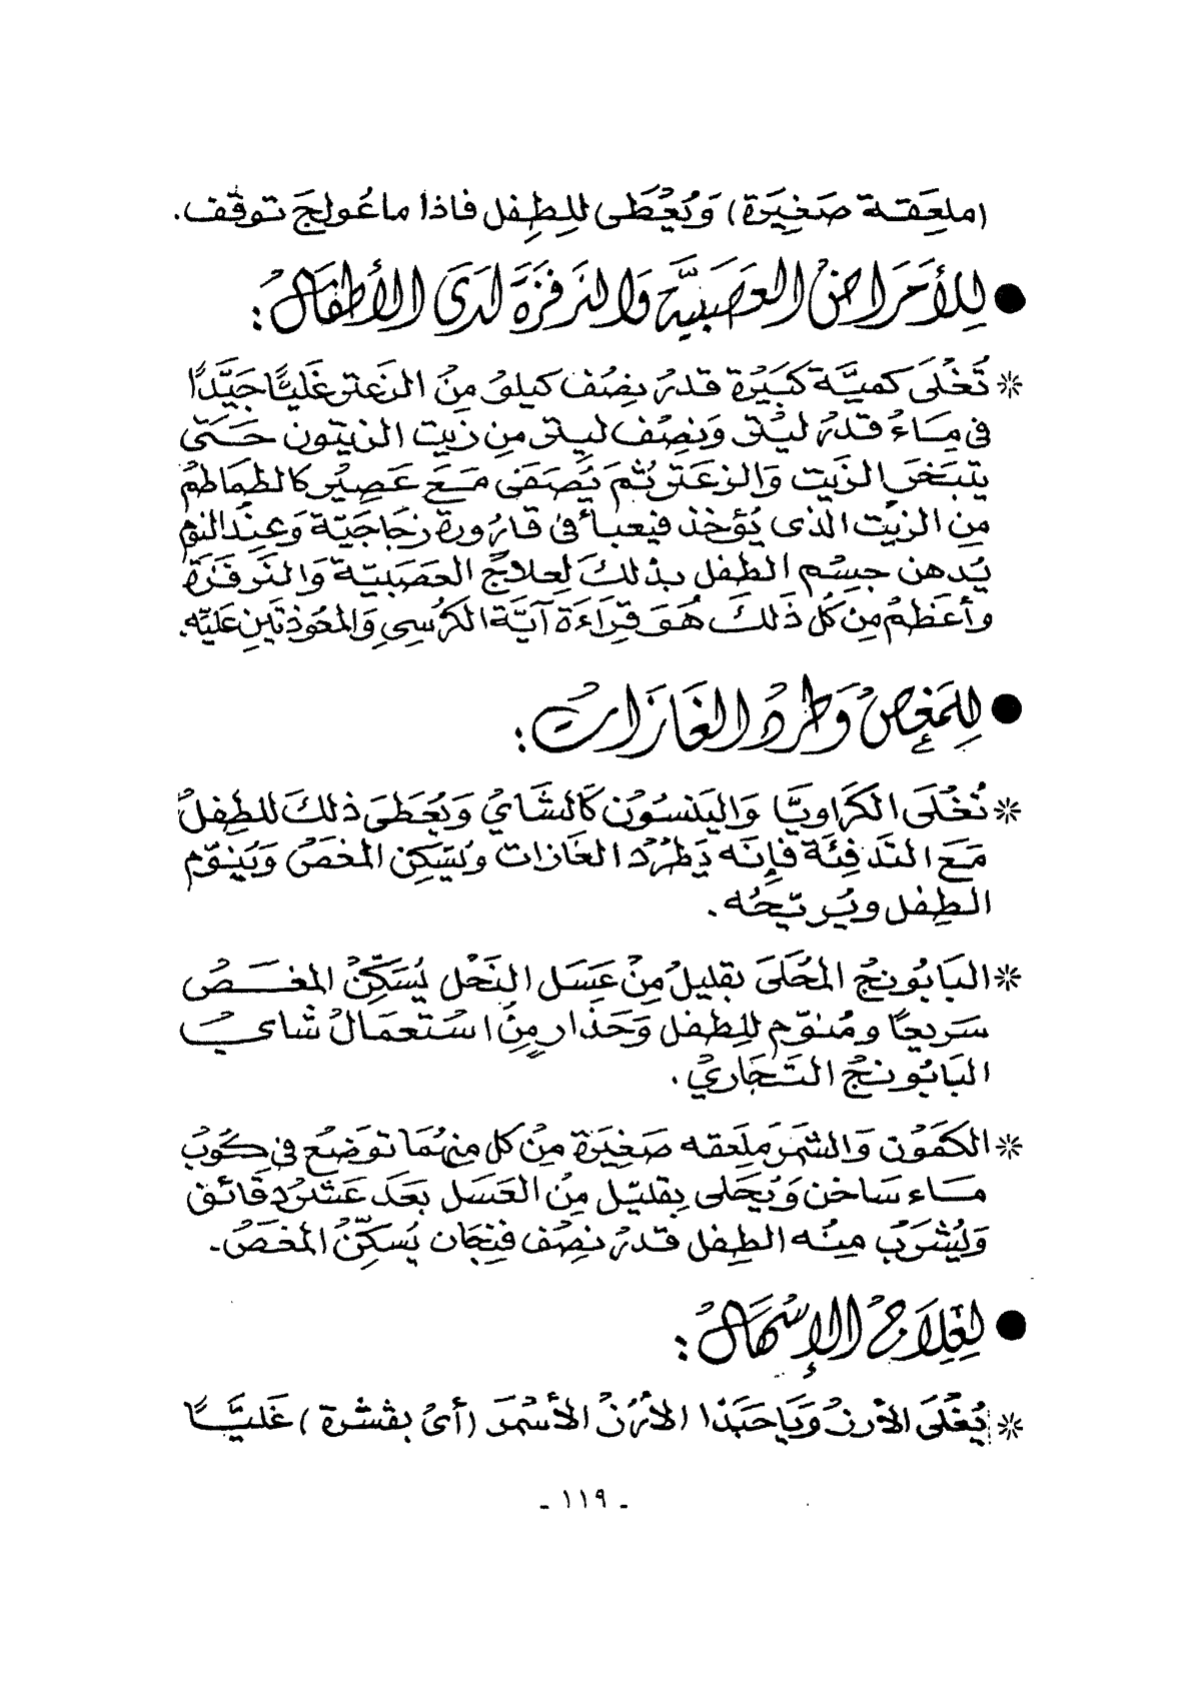 (ملعَقـة صَغيَرة) وَيُعْطَى للِطِفل فاذا ما عُولجَ توقف.
● لِلأَمَراضْ العَصَبيَّة وَالنَرفَزَة لَدَى الأَطفَالْ :
* تُغْلَى كميَّة كَبَيْرة قَدرْ نِصْف كيلو مِنْ الزَعتر غَليًّا جَيَّدًا
فى مِـَاءْ قَدرْ ليْتر وَنِصْف ليتر مِن زَيت الزيتون حَـتَى
يتبَخَر الزَيت وَالزعَتر ثُم يُصَفَى مَـعَ عَصِيْر كالطَمَاطمْ
مِن الزيْت الذى يُؤخذ فيعبأ فى قارُورة زجَاجَيّة وَعِندَ النوم
يُدهن جِسْم الطفل بذلكَ لِعلاجْ العَصَبيّة وَالنَرفَزة
وأعَظمْ مِن كُل ذَلكَ هُوَ قِرَاءَة آيَة الكرُسِي وَالمُعَوذتَين عَليّه.
● لِلَمغصْ وَطردْ الغَازَاتْ :
* تُغْلَى الكَرَاويَّا وَاليَنسُوُن كَالشَايْ وَيُعَطَىَ ذلكَ للطِفلْ
مَعَ التَدفِئَة فَإِنَه يَطرُدْ الغَازات ويُسَكِن المغصْ وَيُنوّم
الطِفل ويُريّحُه .
* البَابُونجْ المُحَلَىَ بقليلْ مِنْ عَسَل النَحْل يُسَكِّنْ المغـَـصْ
سَريعًا ومُنوّم للِطِفل وَحَذار مِنْ اسْتعمَالْ شايْ
البَابُونجْ التَجَاريْ .
* الكمَوُن وَالشَمَر مَلعَقه صَغيَرة مِنْ كل مِنهُمَا توَضَع فى كُوبْ
مَـاء سَاخن وَيُحَلى بِقليّل مِنْ العَسَل بَعَد عَشرْ دِقَائق
وَيُشَربْ مِنْه الطِفل قَدرْ نصْف فِنجَان يُسَكِّنْ المغَصْ.
● لِعِلاَجْ الإِسْهَالْ :
* يُغْلَىَ الأرزْ وَيَا حَبَذا الأرُزْ الأَسْمَر (أىْ بقشْرة) غَليًّـا
- ١١٩ -